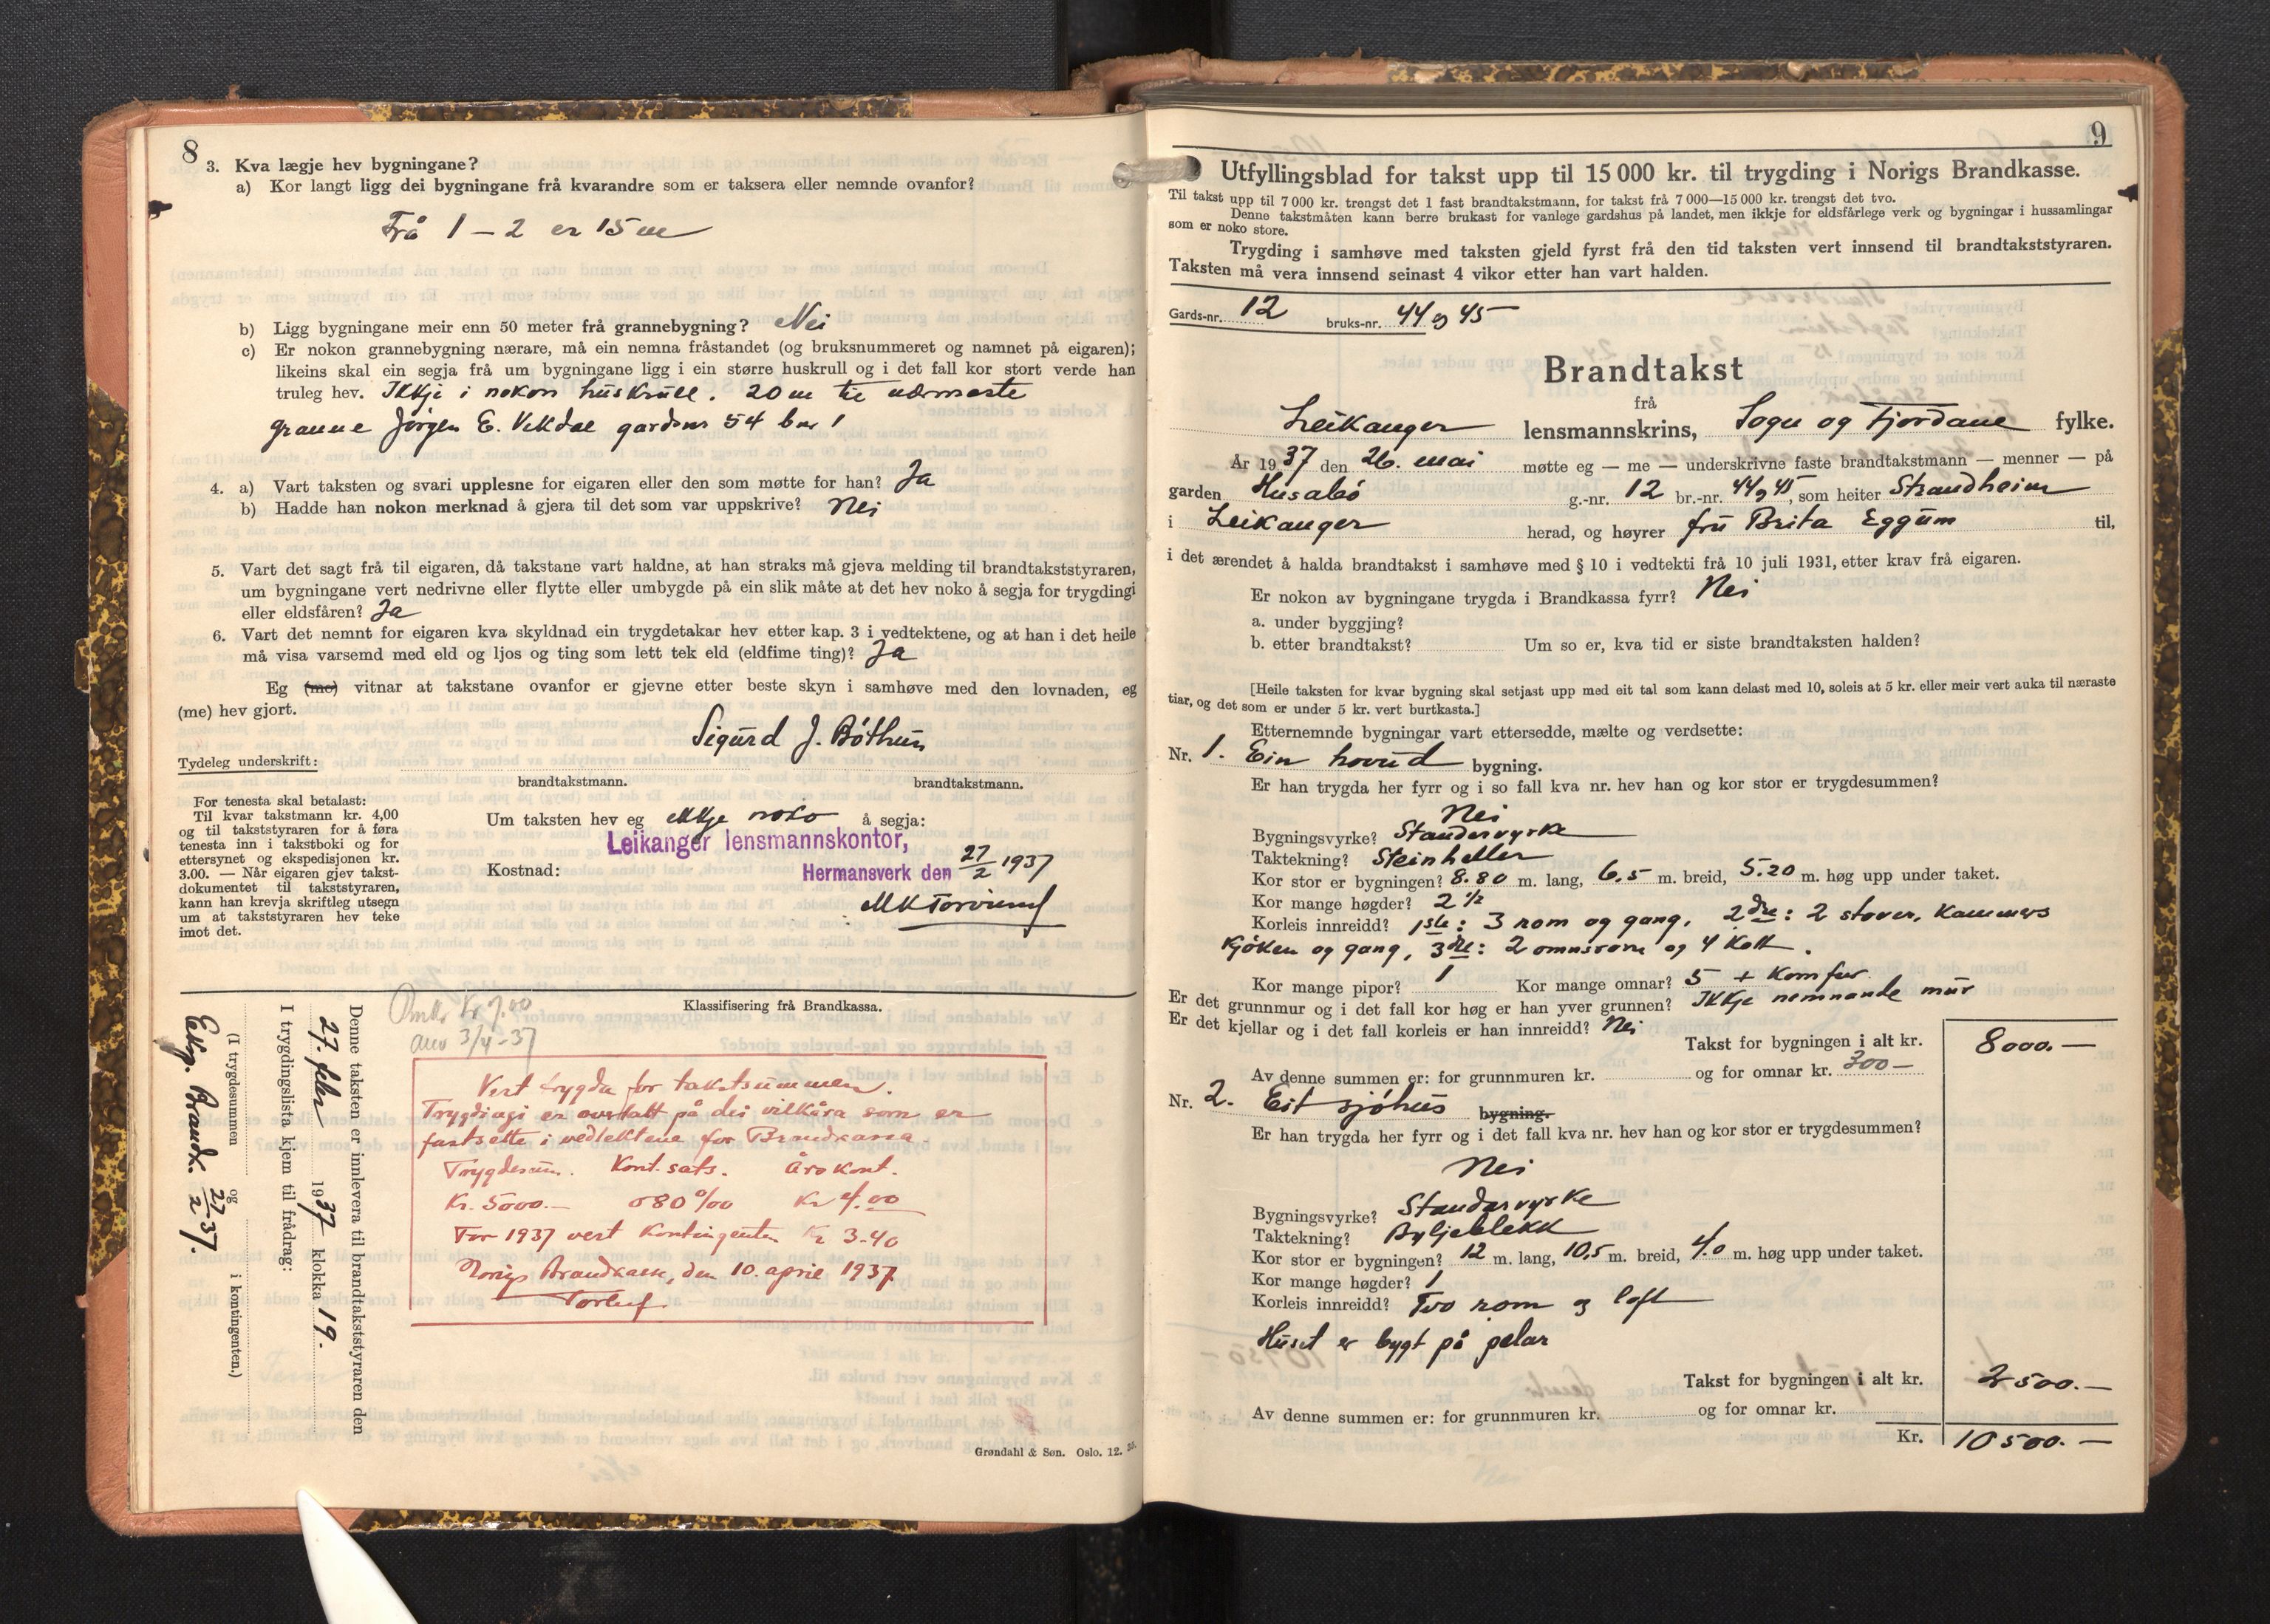 8
3. Kva lægje hev bygningane?
a) Kor langt ligg dei bygningane frå kvarandre som er taksera eller nemnde ovanfor?
Frå 1 – 2 er 15 m
b) Ligg bygningane meir enn 50 meter frå grannebygning? Nei
c) Er nokon grannebygning nærare, må ein nemna fråstandet (og bruksnummeret og namnet på eigaren);
likeins skal ein segja frå um bygningane ligg i ein større huskrull og i det fall kor stort verde han
truleg hev. Ikkje i nokon huskrull. 20 m til nærmaste
granne Jørgen E. Vikdal gardsnr 54 bnr 1
4. a) Vart taksten og svari upplesne for eigaren eller den som møtte for han? Ja
b) Hadde han nokon merknad å gjera til det som var uppskrive? Nei
5. Vart det sagt frå til eigaren, då takstane vart haldne, at han straks må gjeva melding til brandtakststyraren,
um bygningane vert nedrivne eller flytte eller umbygde på ein slik måte at det hev noko å segja for trygdingi
eller eldsfåren? Ja
6. Vart det nemnt for eigaren kva skyldnad ein trygdetakar hev etter kap. 3 i vedtektene, og at han i det heile
må visa varsemd med eld og ljos og ting som lett tek eld (eldfime ting)? Ja
Eg (me) vitnar at takstane ovanfor er gjevne etter beste skyn i samhøve med den lovnaden, eg
(me) hev gjort.
Sigurd J. Bøthun
Tydeleg underskrift:
brandtakstmann. brandtakstmann.
For tenesta skal betalast:
Til kvar takstmann kr. 4,00
og til takststyraren for å føra
tenesta inn i takstboki og for
ettersynet og ekspedisjonen kr.
3.00. — Når eigaren gjev takst-
dokumentet til takststyraren,
kann han krevja skriftleg utsegn
um at takststyraren hev teke
imot det.
Um taksten hev eg ikkje noko å segja:
Leikanger lensmannskontor,
Kostnad:
Hermansverk den 27/2 1937
Klassifisering frå Brandkassa.
Kr 7.00
3/4-37
Vert trygda for takstsummen.
Trygdingi er avslatt på dei vilkåra som er
fastsette i vedtektene for Brandkassa.
Trygdesum. Kont. sats. Årskont.
Kr. 5000.— 080 ‰ Kr 4.00
For 1937 vert kontingenten Kr 3.40
Norigs Brandkasse, den 10. april 1937.
Denne taksten er innlevera til brandtakststyraren den
27. febr 1937 klokka 19.
I trygdingslista kjem til frådrag:
(I trygdesummen og i kontingenten.)
Eksp. Brandk. 27/2 37.
Grøndahl & Søn. Oslo. 12.
9
Utfyllingsblad for takst upp til 15 000 kr. til trygding i Norigs Brandkasse.
Til takst upp til 7 000 kr. trengst det 1 fast brandtakstmann, for takst frå 7 000—15 000 kr. trengst det tvo.
Denne takstmåten kann berre brukast for vanlege gardshus på landet, men ikkje for eldsfårlege verk og bygningar i hussamlingar
som er noko store.
Trygding i samhøve med taksten gjeld fyrst frå den tid taksten vert innsend til brandtakststyraren.
Taksten må vera innsend seinast 4 vikor etter han vart halden.
Gards-nr. 12 bruks-nr. 44 og 45
Brandtakst
frå
Leikanger lensmannskrins, Sogn og Fjordane fylke.
År 1937 den 26. mai møtte eg — me — underskrivne faste brandtakstmann — menner — på
garden Husabø g.-nr. 12 br.-nr. 44 og 45, som heiter Strandheim
i Leikanger herad, og høyrer fru Brita Eggum til,
i det ærendet å halda brandtakst i samhøve med § 10 i vedtekti frå 10 juli 1931, etter krav frå eigaren.
Er nokon av bygningane trygda i Brandkassa fyrr? Nei
a. under byggjing?
b. etter brandtakst? Um so er, kva tid er siste brandtaksten halden?
[Heile taksten for kvar bygning skal setjast upp med eit tal som kann delast med 10, soleis at 5 kr. eller meir vert auka til næraste
tiar, og det som er under 5 kr. vert burtkasta.]
Etternemnde bygningar vart ettersedde, mælte og verdsette:
Nr. 1. Ein hovud bygning.
Er han trygda her fyrr og i so fall kva nr. hev han og kor stor er trygdesummen?
Nei
Bygningsvyrke? Standarvyrke
Taktekning? Steinheller
Kor stor er bygningen? 8.80 m. lang, 6.5 m. breid, 5.20 m. høg upp under taket.
Kor mange høgder? 2 ½
Korleis innreidd? 1ste: 3 rom og gang, 2dre: 2 stover, kammers
kjøken og gang, 3dje: 2 omnsrom og 4 kott.
Kor mange pipor? 1 Kor mange omnar? 5 + komfur.
Er det grunnmur og i det fall kor høg er han yver grunnen? Ikkje nemnande mur
Er det kjellar og i det fall korleis er han innreidd? Nei
Takst for bygningen i alt kr. 8000.—
Av denne summen er: for grunnmuren kr. og for omnar kr. 300—
Nr. 2. Eit sjøhus bygning.
Er han trygda her fyrr og i det fall kva nr. hev han og kor stor er trygdesummen?
Nei
Bygningsvyrke? Standarvyrke
Taktekning? Bylgjeblekk
Kor stor er bygningen? 12 m. lang, 10,5 m. breid, 4.0 m. høg upp under taket.
Kor mange høgder? 1
Korleis innreidd? Tvo rom og loft
Huset er bygt på pelar
Takst for bygningen i alt kr. 2500.—
Av denne summen er: for grunnmuren kr. og for omnar kr.
Kr. 10500.—